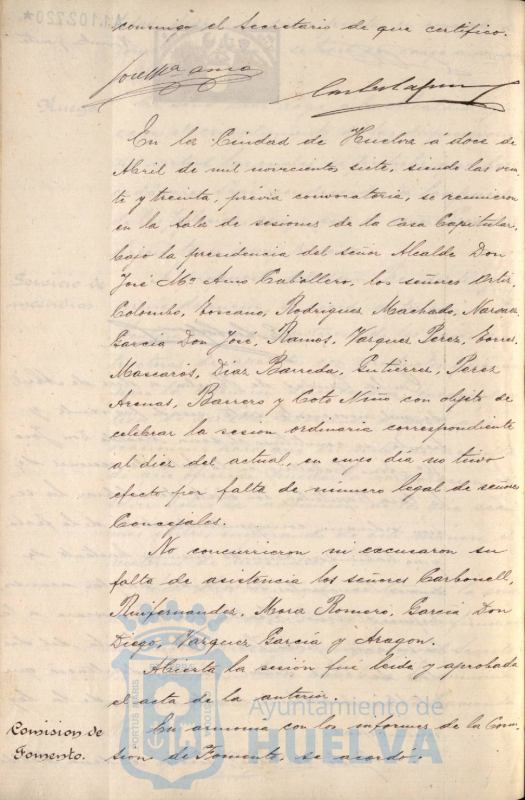 conmigo el Secretario de que certifico.
En la Ciudad de Huelva á doce de
Abril de mil novecientos siete, siendo las vein-
te y treinta, prévia convocatoria, se reunieron
en la Sala de sesiones de la Casa Capitular,
bajo la presidencia del señor Alcalde Don
José Mª Amo Caballero, los señores Ortiz,
Colombo, Toscano, Rodriguez Machado, Narvaez,
Garcia Don José, Ramos, Vazquez Perez, Torres,
Mascaros, Diaz Barreda, Gutierrez, Perez
Arenas, Barrero y Coto Niño con objeto de
celebrar la sesion ordinaria correspondiente
al diez del actual, en cuyo día no tuvo
efecto por falta de número legal de señores
Concejales.
No concurrieron ni excusaron su
falta de asistencia los señores Carbonell,
Ruifernandez, Mora Romero, Garcia Don
Diego, Vazquez García y Aragon.
Abierta la sesión fué leida y aprobada
el acta de la anterior.
Comision de
Fomento.
En armonía con los informes de la Comi-
sion de Fomento, se acordó:
PORTUS MARIS
Ayuntamiento de
HUELVA